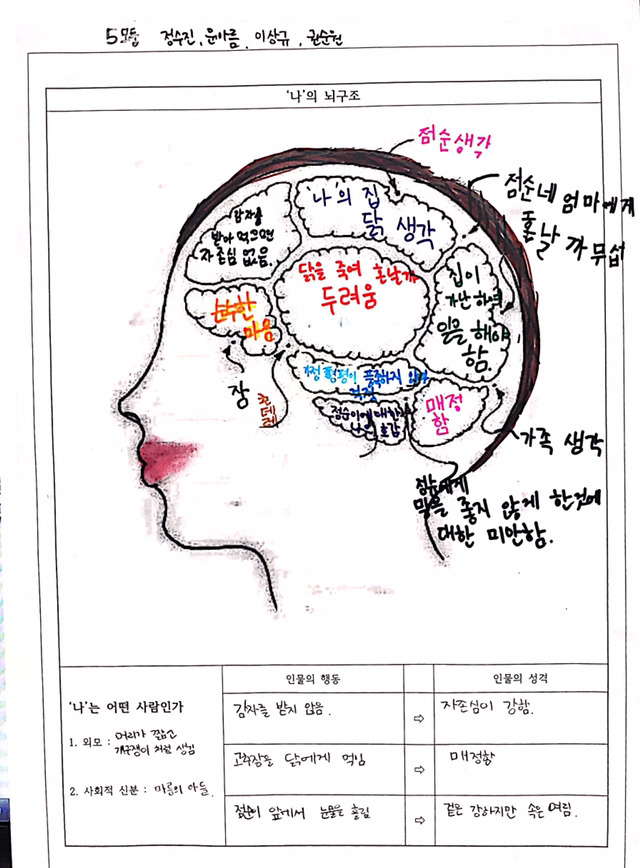 5모둠 정수진, 윤아름, 이상규, 권순원
'나'의 뇌구조
점순생각
점순네 엄마에게
혼날 까 무섭
감자를
받아 먹으면
자존심 없음.
'나'의 집
닭 생각
닭을 죽여 혼날까
두려움
집이
가난하여
일을 해야
함.
순수한
마음
장
츤데레
가정 형편이 풍족하지 않아
걱정
점순이에 대한
남은 호감
매정
함
가족 생각
점순에게
말을 좋지 않게 한것에
대한 미안함.
'나'는 어떤 사람인가
1. 외모 : 머리가 짧고
개구쟁이 처럼 생김
2. 사회적 신분 : 마름의 아들.
인물의 행동
인물의 성격
감자를 받지 않음.
⇨
자존심이 강함.
고추장을 닭에게 먹임
⇨
매정함
점순이 앞에서 눈물을 흘림
⇨
겉은 강하지만 속은 여림.